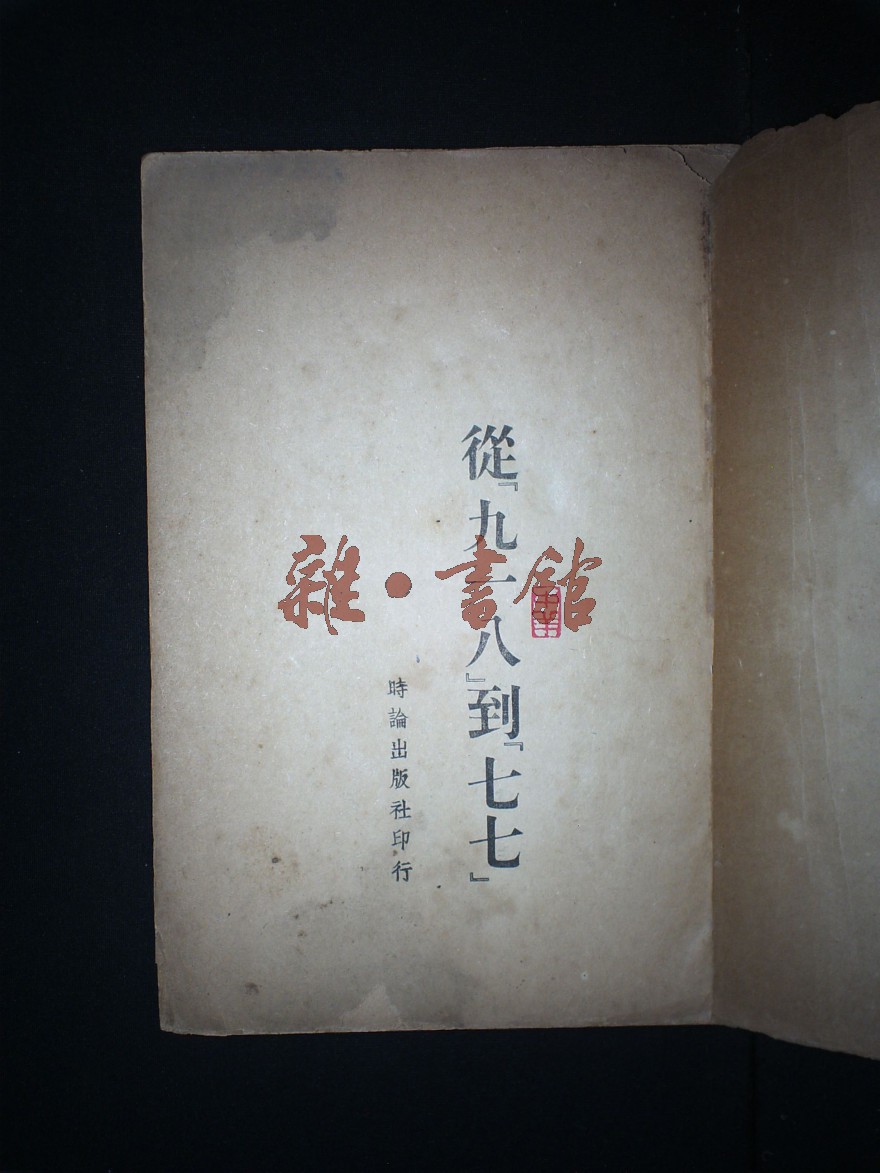 從『九一八』到『七七』
時論出版社印行
雜•書館